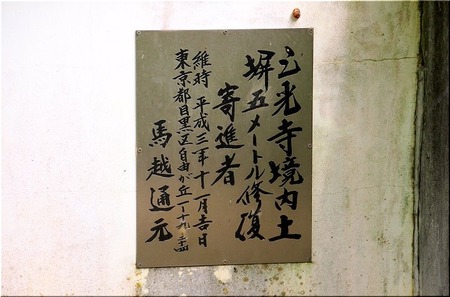 光寺境内土
塀五メートル修復
寄進者
維時 平成三年十一月吉日
東京都目黒区自由が丘一ー十九ー
馬越通元